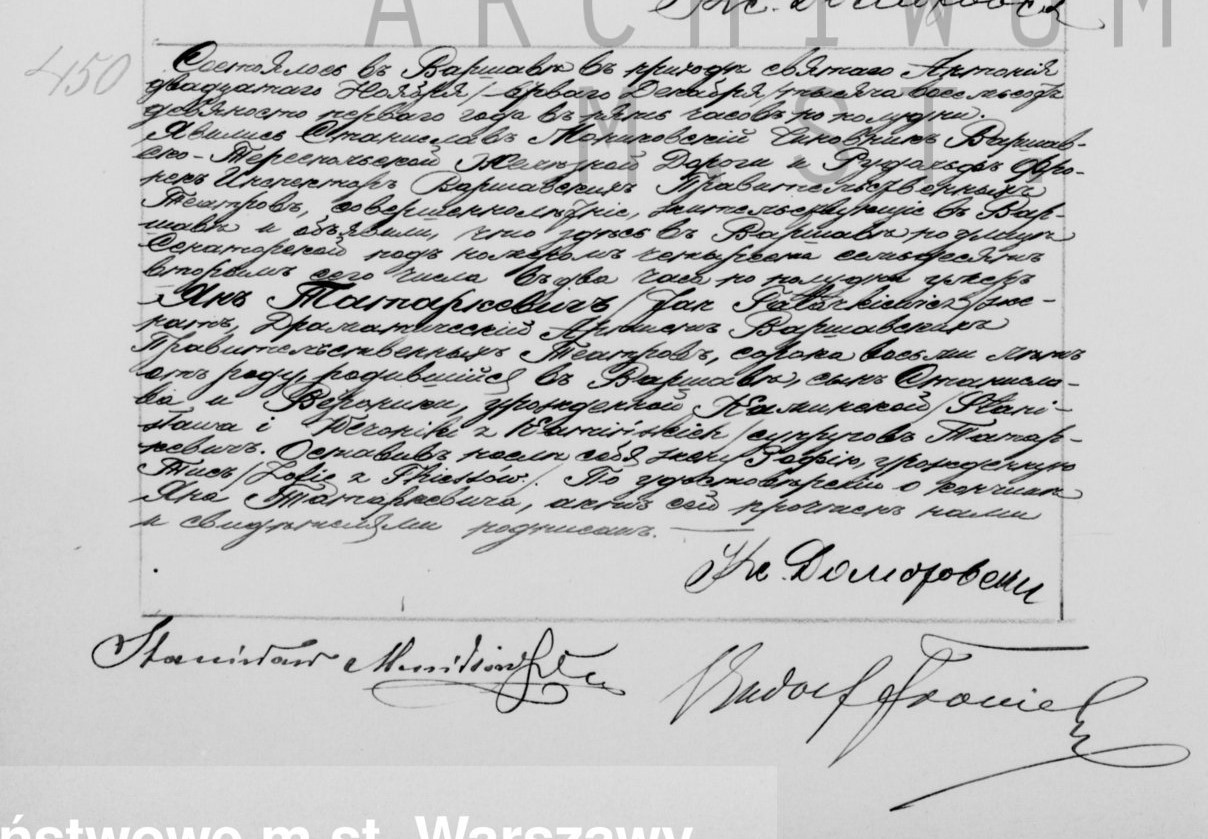 Кс. Доморовски
ARCHIWUM
450
Состоялось въ Варшавѣ въ приходѣ святаго Антонія
двадцатаго Ноября / перваго Декабря / тысяча восемьсотъ
девяносто перваго года въ пять часовъ по полудни.
Явились Станиславъ чиновникъ Варшав-
ско-Тереспольской Желѣзной Дороги и Рудольфъ Фро-
нель Инспекторъ Варшавскихъ Правительственныхъ
Театровъ, совершеннолѣтніе, жительствующіе въ Вар-
шавѣ и объявили, что здѣсь въ Варшавѣ по улицѣ
Сенаторской подъ номеромъ четыреста семьдесятъ
вторымъ сего числа въ два часа по полудни умеръ
Янъ Татаркевичъ / Jan Tatarkiewicz / же-
натъ, Драматическій Артистъ Варшавскихъ
Правительственныхъ Театровъ, сорока восьми лѣтъ
отъ роду, родившійся въ Варшавѣ, сынъ Станисла-
ва и Вероники, урожденной Каминской / Stani-
sława i Weroniki z Kamińskich / супруговъ Татар-
кевичъ. Оставивъ послѣ себя жену Софію, урожденную
Тисъ / Zofię z Thiessów /. По удостовѣреніи о кончинѣ
Яна Татаркевича, актъ сей прочтенъ нами
и свидѣтелями подписанъ.
Кс. Доморовски
Stanisław
Rudolf Froniel
M. ST.
ństwowe m.st. Warszawy